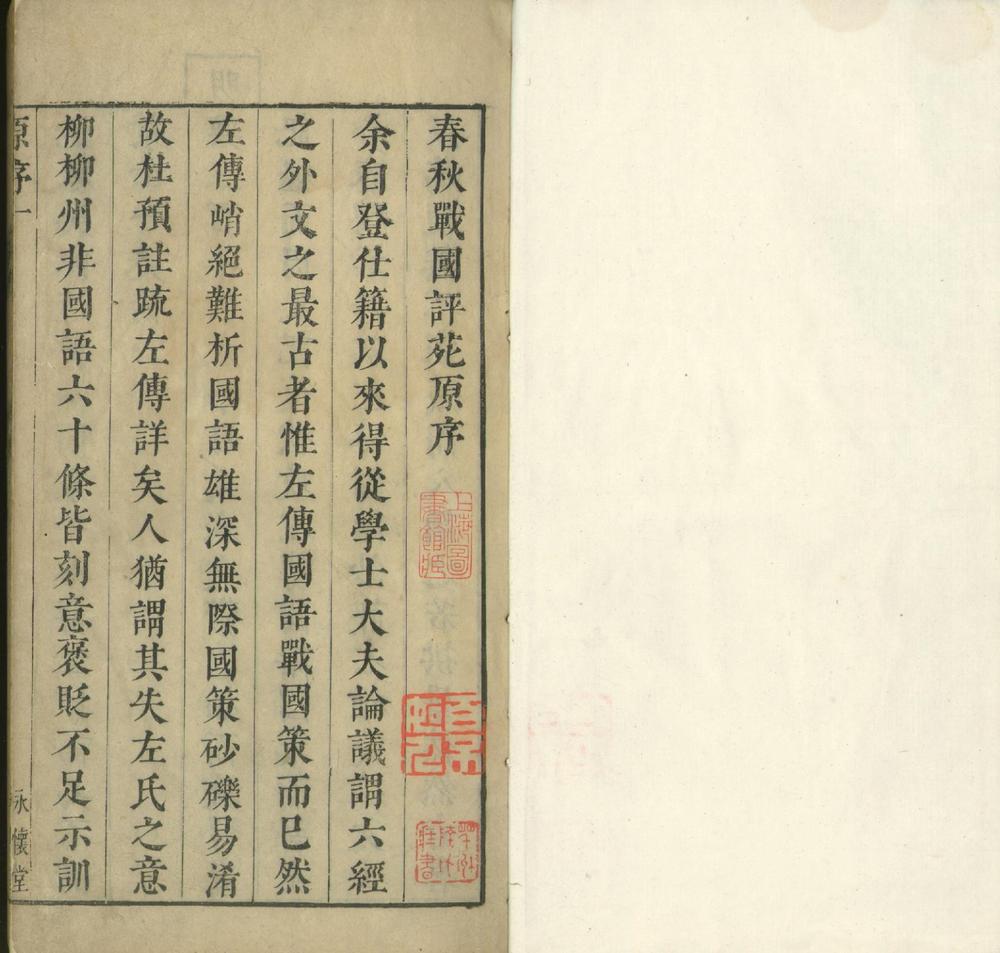 春秋戰國評苑原序
余自登仕籍以來得從學士大夫論議謂六經
之外文之最古者惟左傳國語戰國策而已然
左傳峭絕難析國語雄深無際國策砂礫易淆
故杜預註疏左傳詳矣人猶謂其失左氏之意
柳柳州非國語六十條皆刻意褒貶不足示訓
原序一
永懷堂
上海圖書館藏